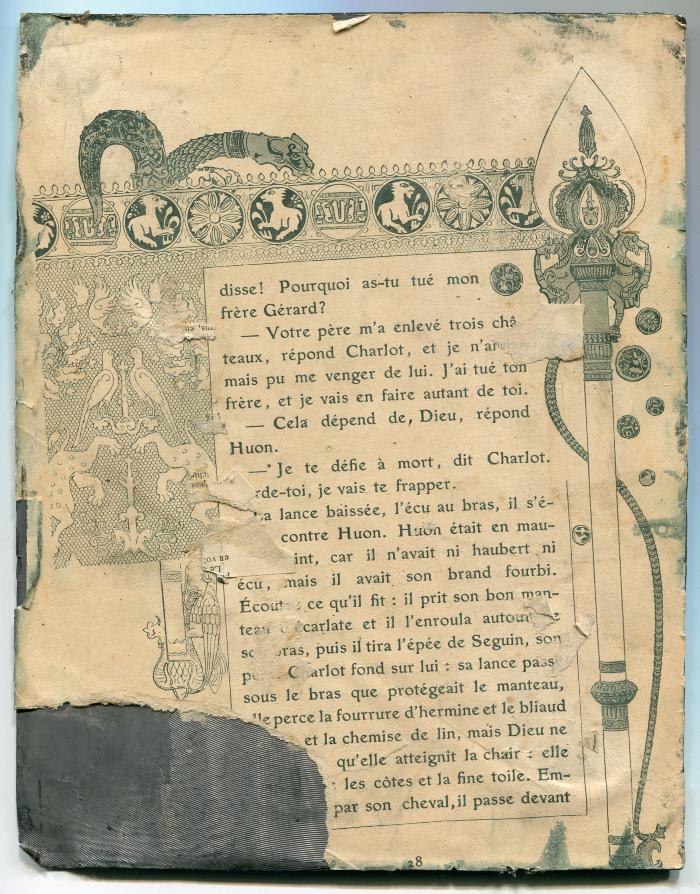 disse! Pourquoi as-tu tué mon
frère Gérard?
— Votre père m'a enlevé trois châ-
teaux, répond Charlot, et je n'ai
mais pu me venger de lui. J'ai tué ton
frère, et je vais en faire autant de toi.
— Cela dépend de, Dieu, répond
Huon.
— Je te défie à mort, dit Charlot.
rde-toi, je vais te frapper.
la lance baissée, l'écu au bras, il s'é-
contre Huon. Huon était en mau-
int, car il n'avait ni haubert ni
écu, mais il avait son brand fourbi.
Écoutez ce qu'il fit : il prit son bon man-
teau d'écarlate et il l'enroula autour de
son bras, puis il tira l'épée de Seguin, son
Charlot fond sur lui : sa lance passe
sous le bras que protégeait le manteau,
elle perce la fourrure d'hermine et le bliaud
et la chemise de lin, mais Dieu ne
qu'elle atteignit la chair : elle
les côtes et la fine toile. Em-
par son cheval, il passe devant
28